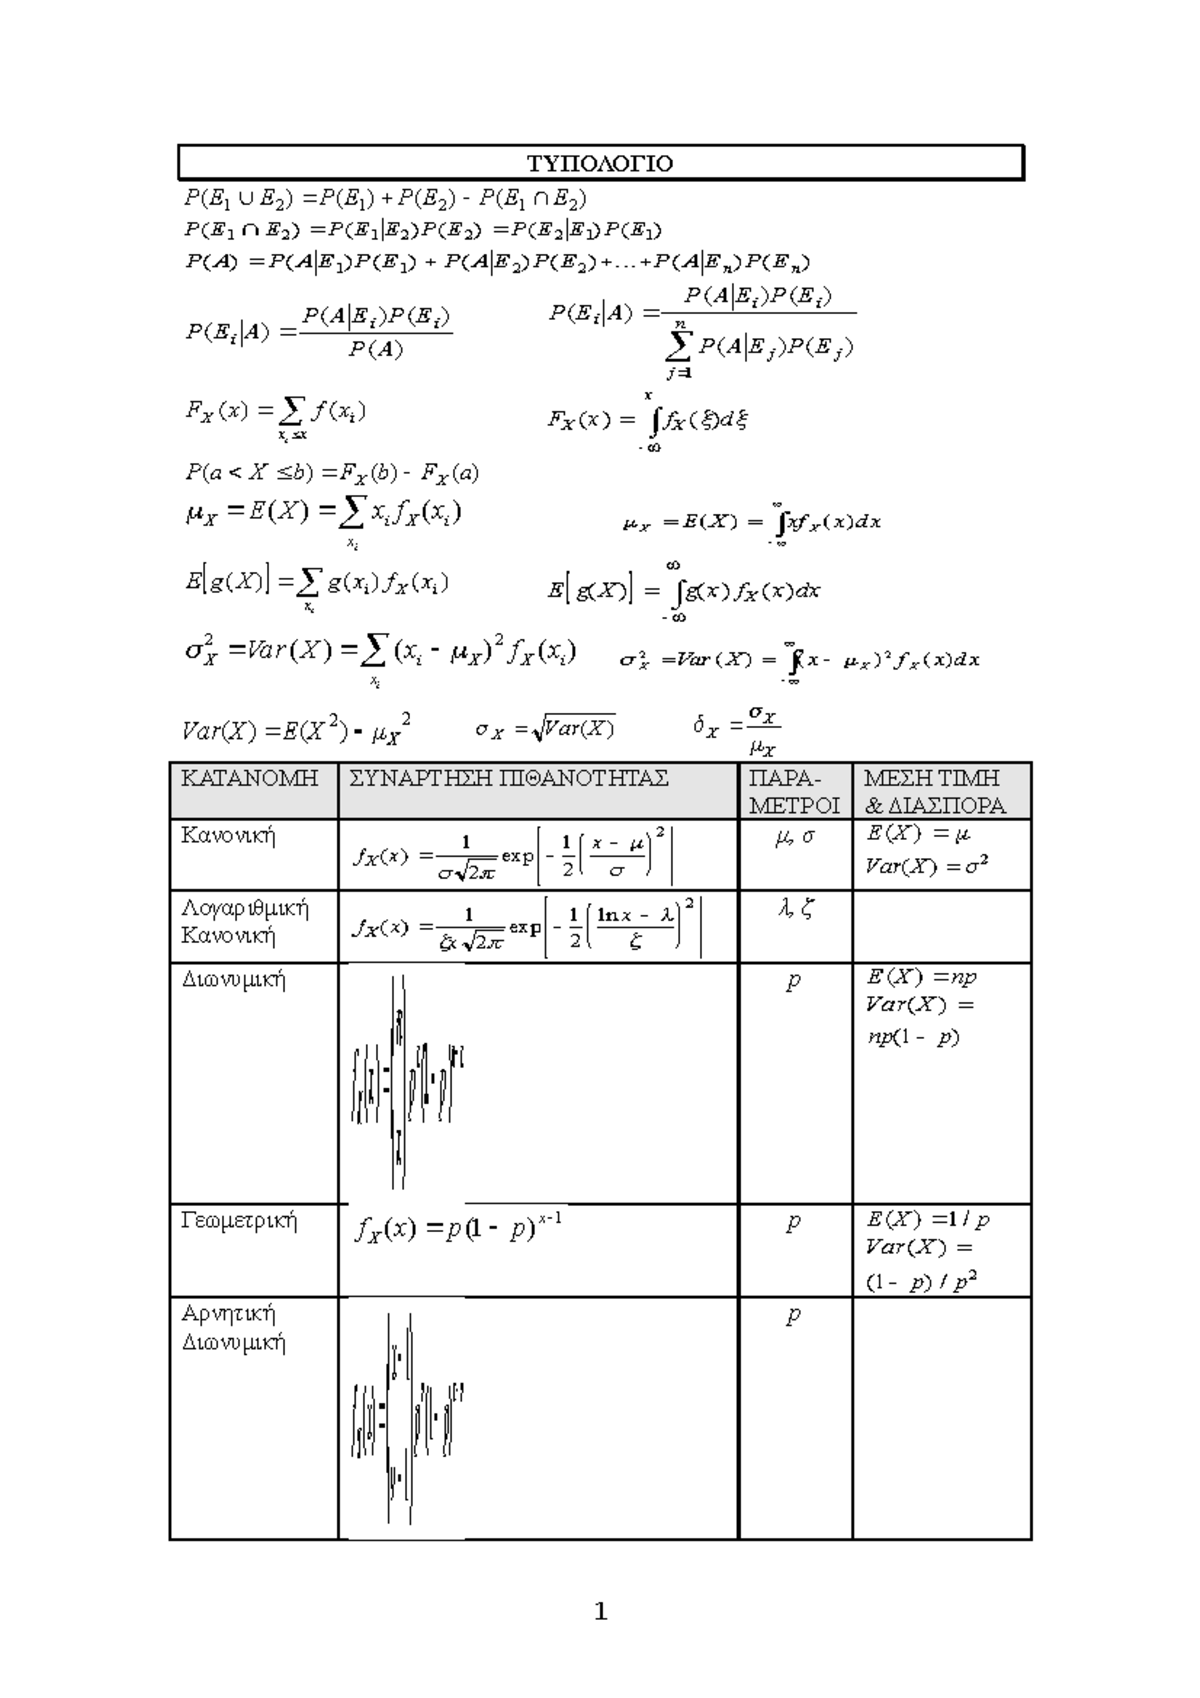 ΤΥΠΟΛΟΓΙΟ
P(E₁ ∪ E₂) = P(E₁) + P(E₂) - P(E₁ ∩ E₂)
P(E₁ ∩ E₂) = P(E₁|E₂)P(E₂) = P(E₂|E₁)P(E₁)
P(A) = P(A|E₁)P(E₁) + P(A|E₂)P(E₂)+...+P(A|Eₙ)P(Eₙ)
P(E_i|A) = P(A|E_i)P(E_i) / P(A)
P(E_i|A) = P(A|E_i)P(E_i) / ∑_{j=1}^{n} P(A|E_j)P(E_j)
F_X(x) = ∑_{x_i ≤ x} f(x_i)
F_X(x) = ∫_{-∞}^{x} f_X(ξ)dξ
P(a < X ≤ b) = F_X(b) - F_X(a)
μ_X = E(X) = ∑_{x_i} x_i f_X(x_i)
μ_X = E(X) = ∫_{-∞}^{∞} xf_X(x)dx
E[g(X)] = ∑_{x_i} g(x_i) f_X(x_i)
E[g(X)] = ∫_{-∞}^{∞} g(x) f_X(x)dx
σ_X² = Var(X) = ∑_{x_i} (x_i - μ_X)² f_X(x_i)
σ_X² = Var(X) = ∫_{-∞}^{∞} (x - μ_X)² f_X(x)dx
Var(X) = E(X²) - μ_X²
σ_X = √Var(X)
δ_X = σ_X / μ_X
ΚΑΤΑΝΟΜΗ
ΣΥΝΑΡΤΗΣΗ ΠΙΘΑΝΟΤΗΤΑΣ
ΠΑΡΑ-
ΜΕΤΡΟΙ
ΜΕΣΗ ΤΙΜΗ
& ΔΙΑΣΠΟΡΑ
Κανονική
f_X(x) = 1/(σ√2π) exp[-1/2((x - μ)/σ)²]
μ, σ
E(X) = μ
Var(X) = σ²
Λογαριθμική
Κανονική
f_X(x) = 1/(ζx√2π) exp[-1/2((ln x - λ)/ζ)²]
λ, ζ
Διωνυμική
p
E(X) = np
Var(X) =
np(1 - p)
Γεωμετρική
f_X(x) = p(1 - p)^{x-1}
p
E(X) = 1 / p
Var(X) =
(1 - p) / p²
Αρνητική
Διωνυμική
p
1